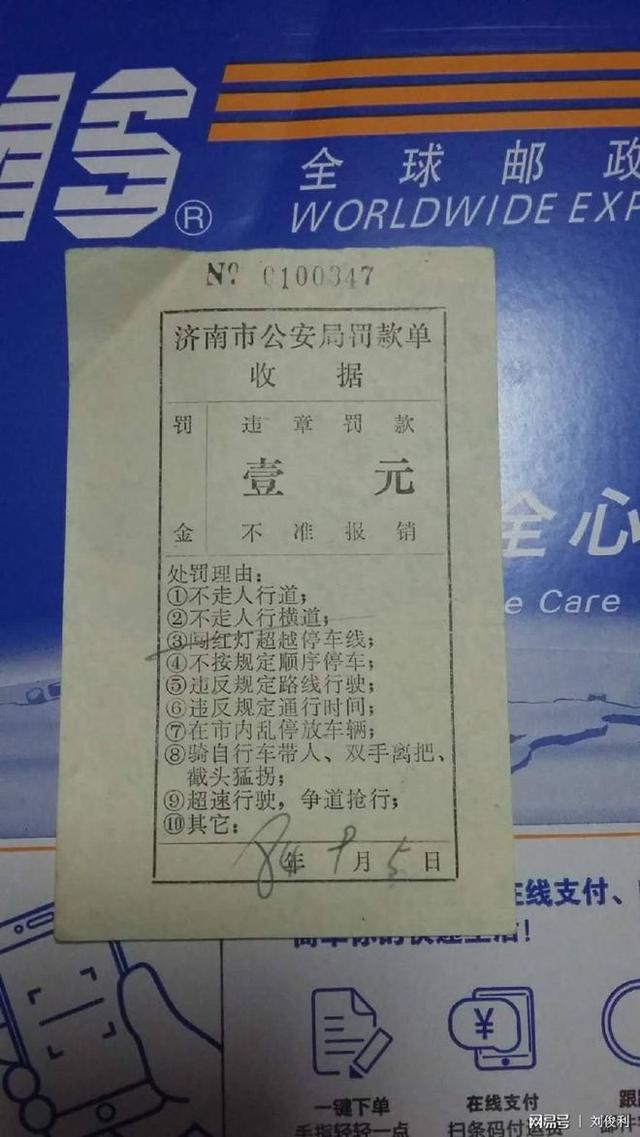 MS®
全球邮政
WORLDWIDE EXP
№ 0100347
济南市公安局罚款单
收据
罚 违章罚款
壹元
金 不准报销
处罚理由：
①不走人行道；
②不走人行横道；
③闯红灯超越停车线；
④不按规定顺序停车；
⑤违反规定路线行驶；
⑥违反规定通行时间；
⑦在市内乱停放车辆；
⑧骑自行车带人、双手离把、
截头猛拐；
⑨超速行驶，争道抢行；
⑩其它：
84年9月5日
全心
e Care
在线支付、
一键下单
手指轻轻一点
¥
在线支付
扫条码付运费
网易号 | 刘俊利